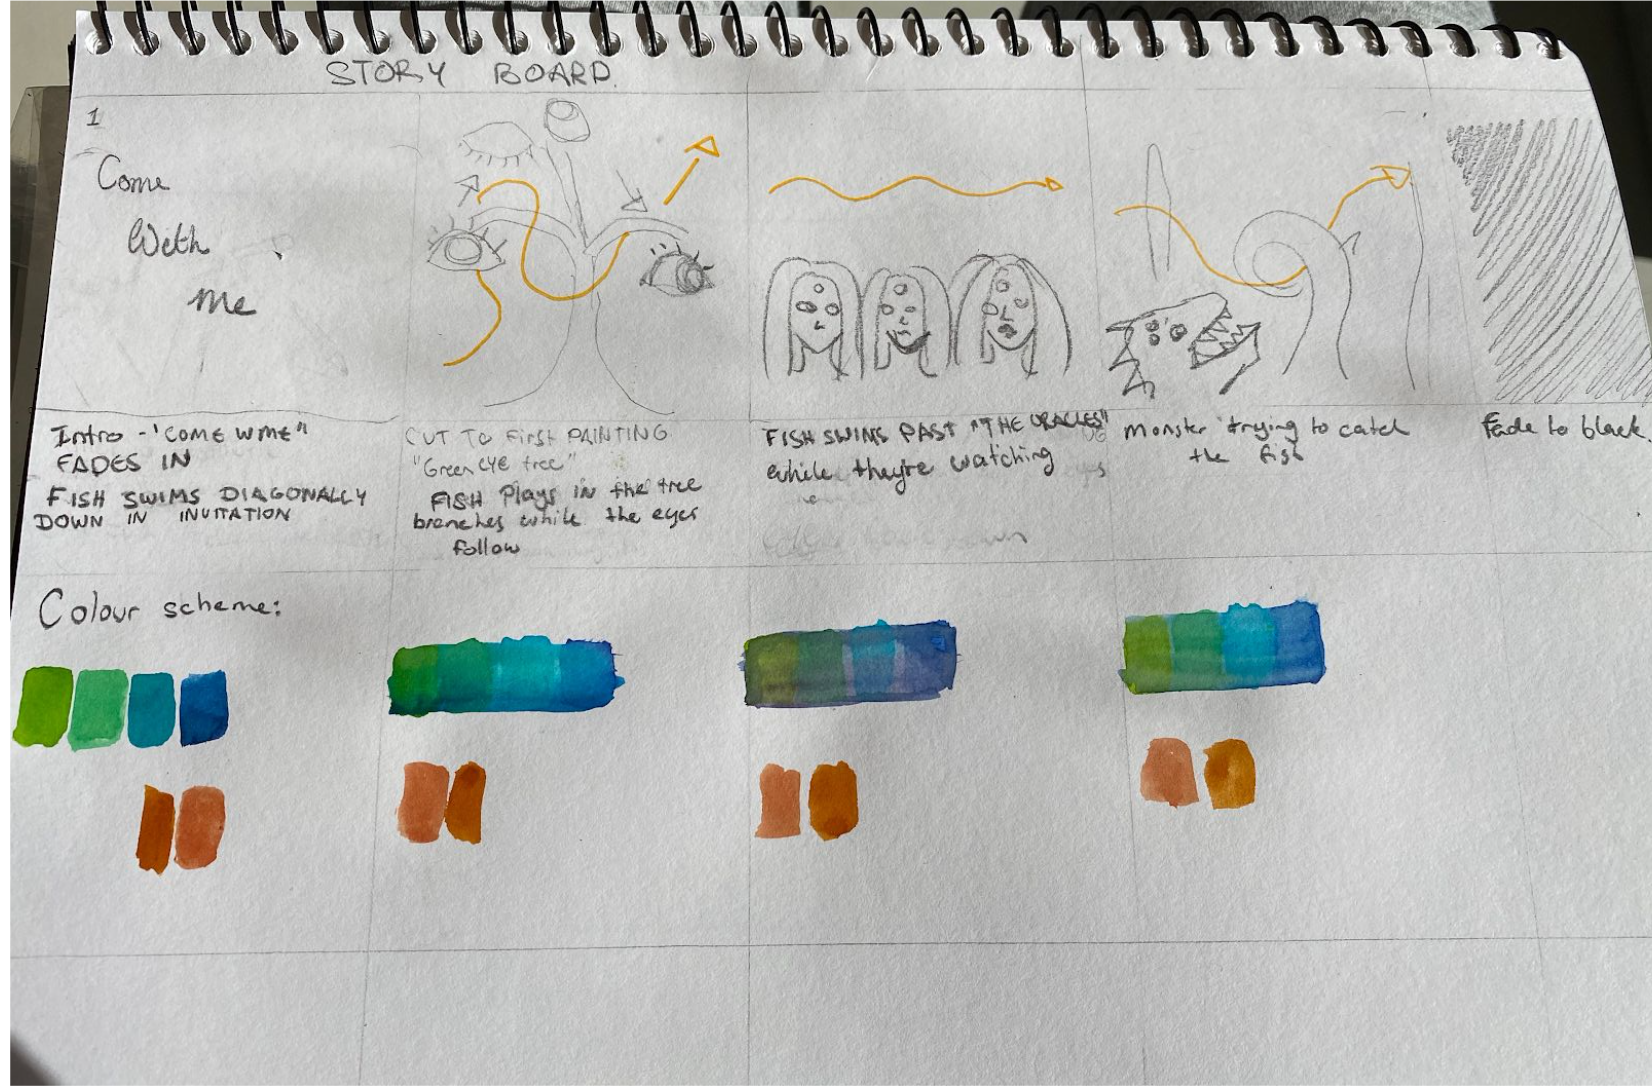 STORY BOARD.
1
Come
With
me
Intro - "COME W ME"
FADES IN
FISH SWIMS DIAGONALLY
DOWN IN INVITATION
CUT TO FIRST PAINTING
"Green EYE tree"
FISH Plays in the tree
branches while the eyes
follow
FISH SWIMS PAST "THE ORACLES"
while they're watching
monster trying to catch
the fish
Fade to black.
Colour scheme: